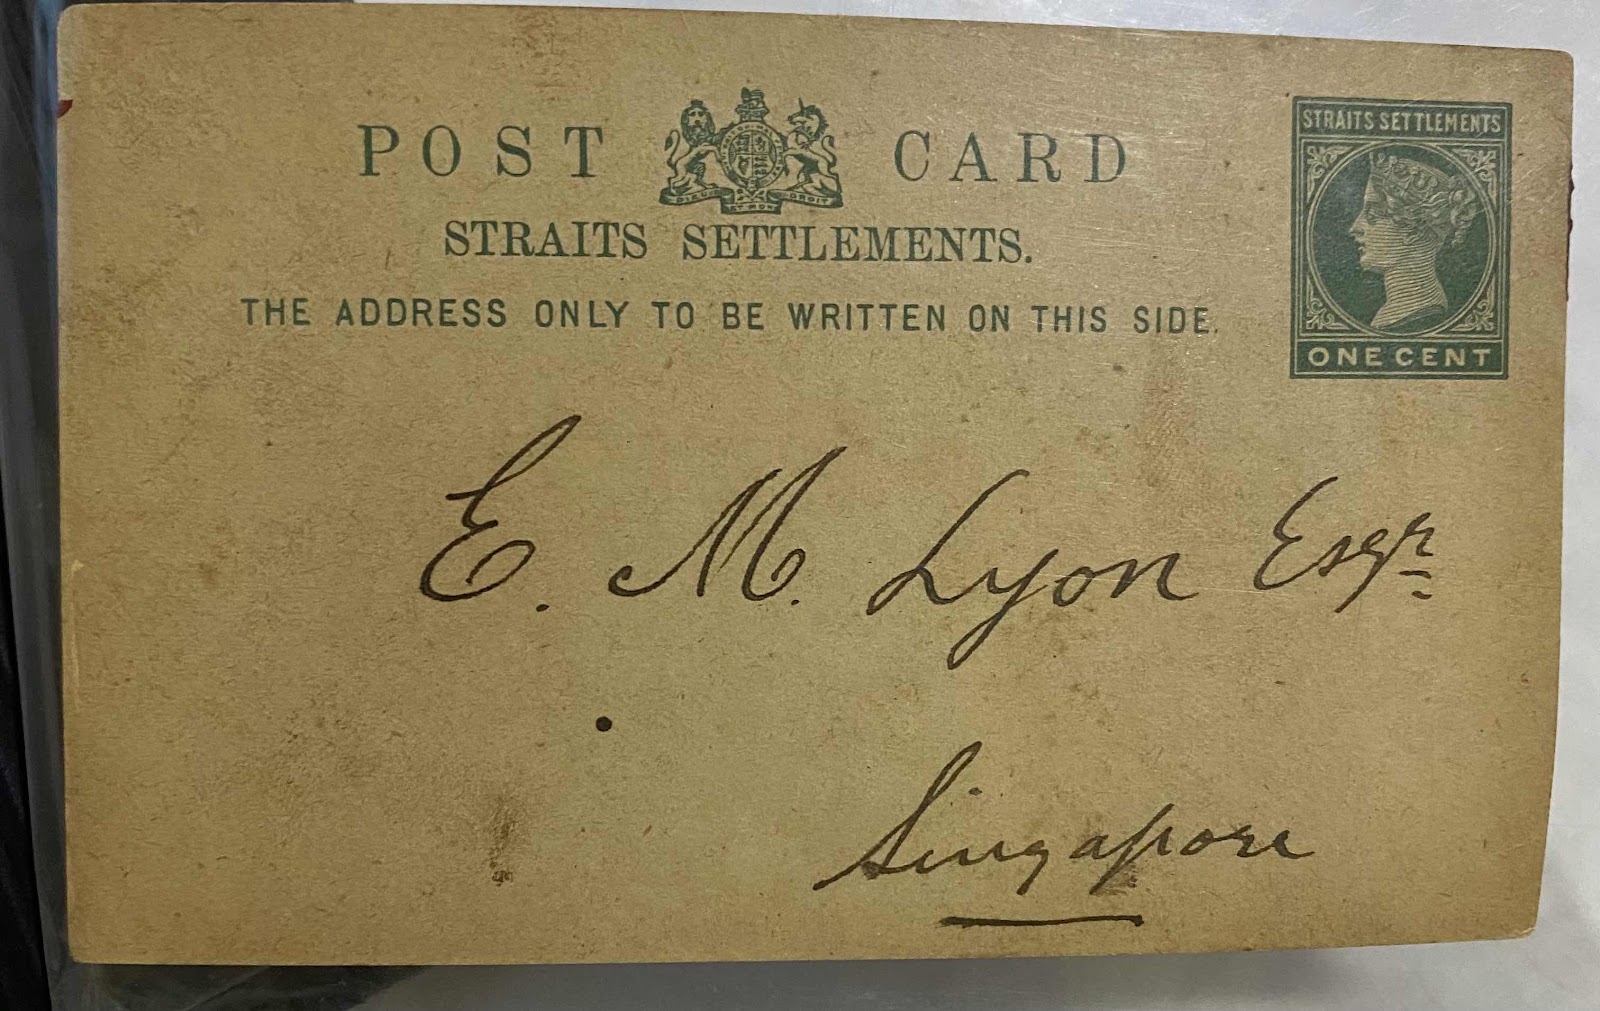 POST CARD
STRAITS SETTLEMENTS.
THE ADDRESS ONLY TO BE WRITTEN ON THIS SIDE.
STRAITS SETTLEMENTS
ONE CENT
E. M. Lyon Esqr
Singapore